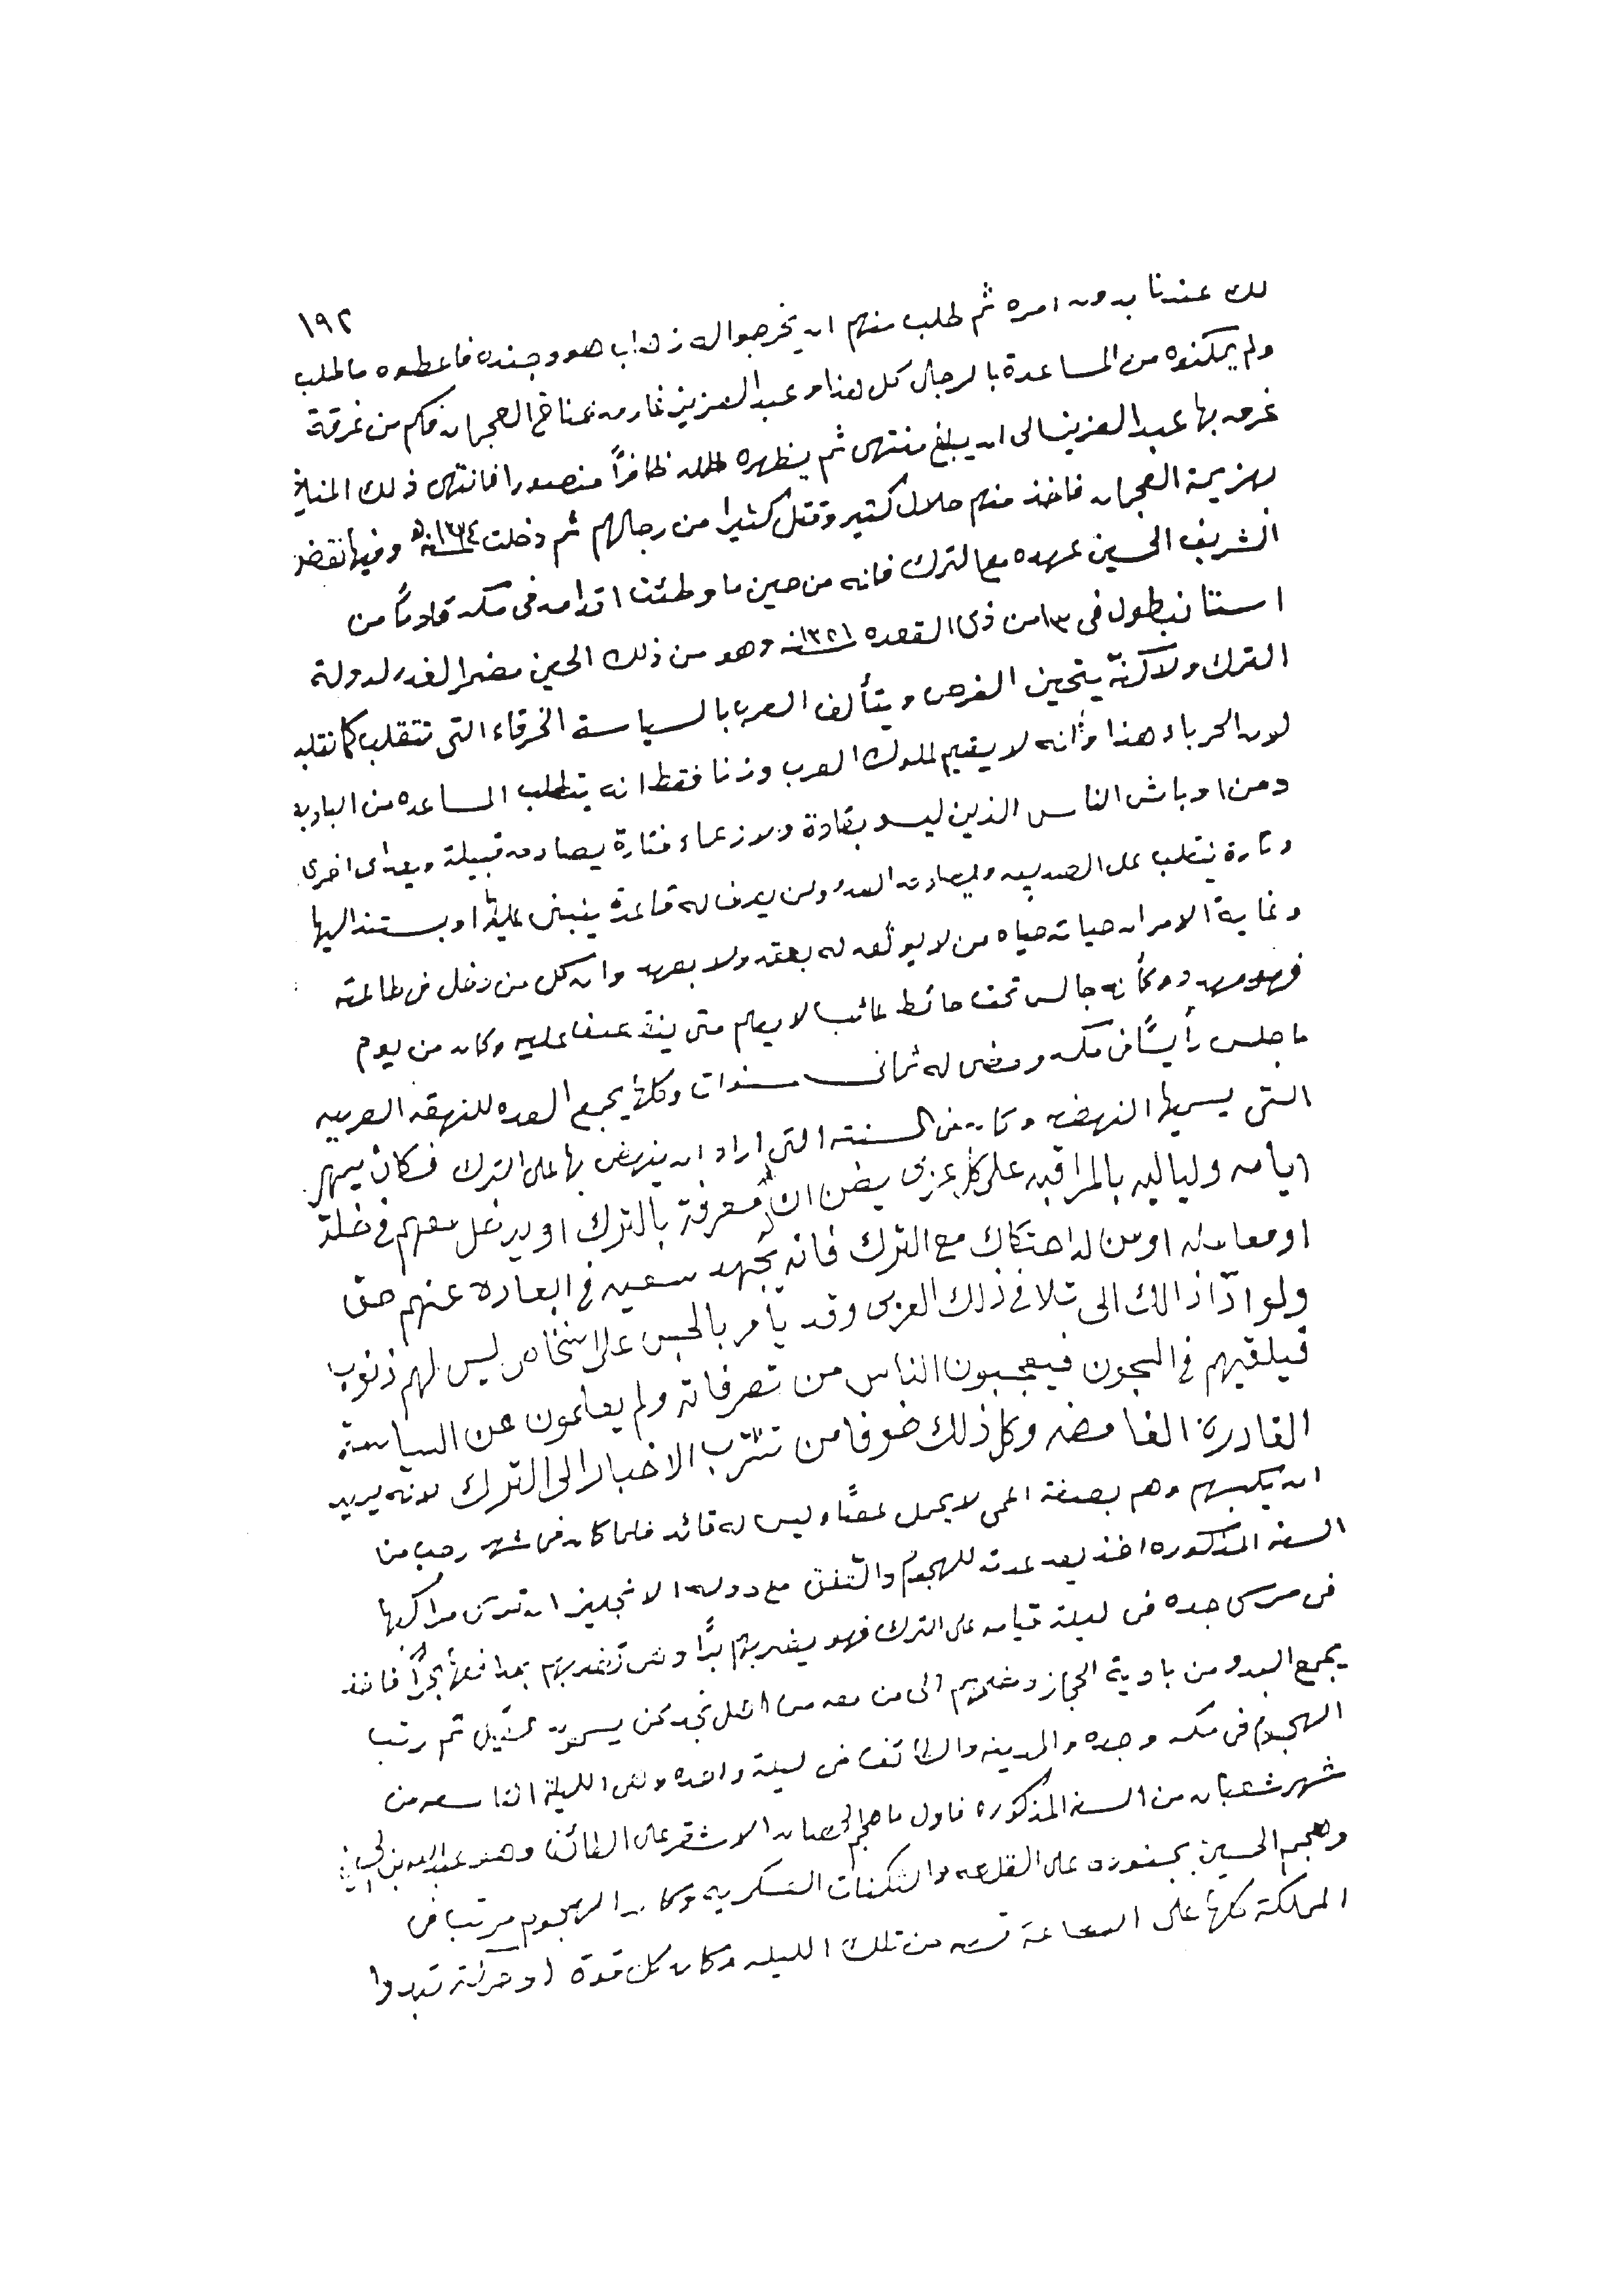 ١٩٢
لك عندنا بدون امره ثم طلب منهم ان يخرجوا له زهاب هو وجنده فاعطوه ما طلب
ولم يمكنوه من المساعدة بالرجال كل هذا وعبد العزيز غارق في مناخ العجمان فكم من غرقة
غرق بها عبد العزيز الى ان يبلغ منتهى ثم يظهره الله ظافراً منصورا فانتهى ذلك المناخ
بهزيمة العجمان فاخذ منهم حلال كثير وقتل كثيرا من رجالهم ثم دخلت سنة ١٣٣٤ه وفيها نقض
الشريف الحسين عهده مع الترك فانه من حين ما وطئت اقدامه في مكه قادماً من
استانبطول في ١٣ من ذي القعده سنة ١٣٢٦ وهو من ذلك الحين مضمر الغدر لدولة
الترك ولاكنّه يتحين الفرص ويتألف العرب بالسياسة الخرقاء التي تتقلب كما تقلب
لون الحرباء هذا وأنه لا يقيم لملوك العرب وزنا فقط انه يتطلب المساعده من الباديه
ومن اوباش الناس الذين ليسو بقادة ولا زعماء فتارة يصادق قبيلة ويعادى اخرى
وتارة ينقلب على الصديق ويصادق العدو ولن يعرف له قاعدة ينبنى عليها او يستند اليها
وغاية الامر ان حياته حياه من لا يوثق له بعقد ولا بعهد وان كل من دخل في طاعته
فهو مهدد وكأنه جالس تحت حائط عائب لا يعلم متى ينقض عليه وكان من يوم
ما جلس رأيسًا في مكه ومضى له ثمان سنوات وكلها يجمع العده للنهضه العربيه
التي يسميها النهضه وكان في السنه التي اراد ان ينهض بها على الترك فكان يسهر
ايامه ولياليه بالمراقبه على كل عربي يضن ان له معرفة بالترك او يدخل معهم في خلة
او معامله او من له احتكاك مع الترك فانه يجهد سعيه في ابعاده عنهم حتى
ولو ادّا ذالك الى تلافي ذلك العربي وقد يأمر بالحبس على اشخاص ليس لهم ذنوب
فيلقيهم في السجون فيعجبون الناس من تصرفاته ولم يعلمون عن السياسة
الغادرة الغامضه وكل ذلك خوفا من تسّرب الاخبار الى الترك لانه يريد
ان يكبسهم وهم بصفة اعمى لا يحمل عصًا وليس له قائد فلما كان في شهر رجب من
السنه المذكوره اخذ يعد عدته للهجوم واتفق مع دولة الانجليز ان تدني مراكبها
في مرسى جده في ليلة قيامه على الترك فهو يضربهم برًا وهي تضربهم بمدافعها بحرًا فاخذ
يجمع البدو من بادية الحجاز وضمهم الى من معه من اهل نجد ممن يسمون عقيل ثم رتب
الهجوم في مكه وجده والمدينه والطائف في ليلة واحده وهي الليلة التاسعه من
شهر شعبان من السنه المذكوره فاول ما هجم الحصان الاشقر على الطائف وهو عبدالله بن الحسين
وهجم الحسين بجنوده على القلعه والثكنات العسكريه وكان الهجوم مرتب في
المملكة كلها على الساعة تسعه من تلك الليله وكان كل قوة او حركة تبدوا